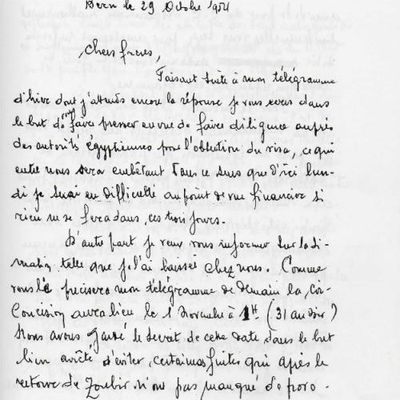 Bern le 29 Octobre 1954
Chers freres,
Faisant suite à mon télégramme
d'hier dont j'attends encore la réponse je vous ecris dans
le but de vous faire presser en vue de faire diligence auprès
des autorités égyptiennes pour l'obtention du visa, ce qui
entre nous sera embêtant dans ce sens que d'ici lun-
di je serai en difficulté au point de vue financier si
rien ne se fera dans, ces trois jours.
D'autre part je veux vous informer sur la si-
tuation telle que je l'ai laissée chez nous. Comme
vous le precisera mon télégramme de demain la, cir-
concision aura lieu le 1 Novembre à 1H (31 au soir)
Nous avons, gardé le secret de cette date dans le but
bien arrêté d'éviter, certaines fuites qui après le
retour de Zoubir n'ont pas manqué de